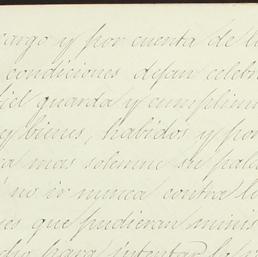 cargo y por cuenta de l
condiciones dejan celebr
fiel guarda y cumplimi
y bienes, habidos y por
ra mas solemne su pala
no ir nunca contra l
es que pudieran minis
cho para intentar la